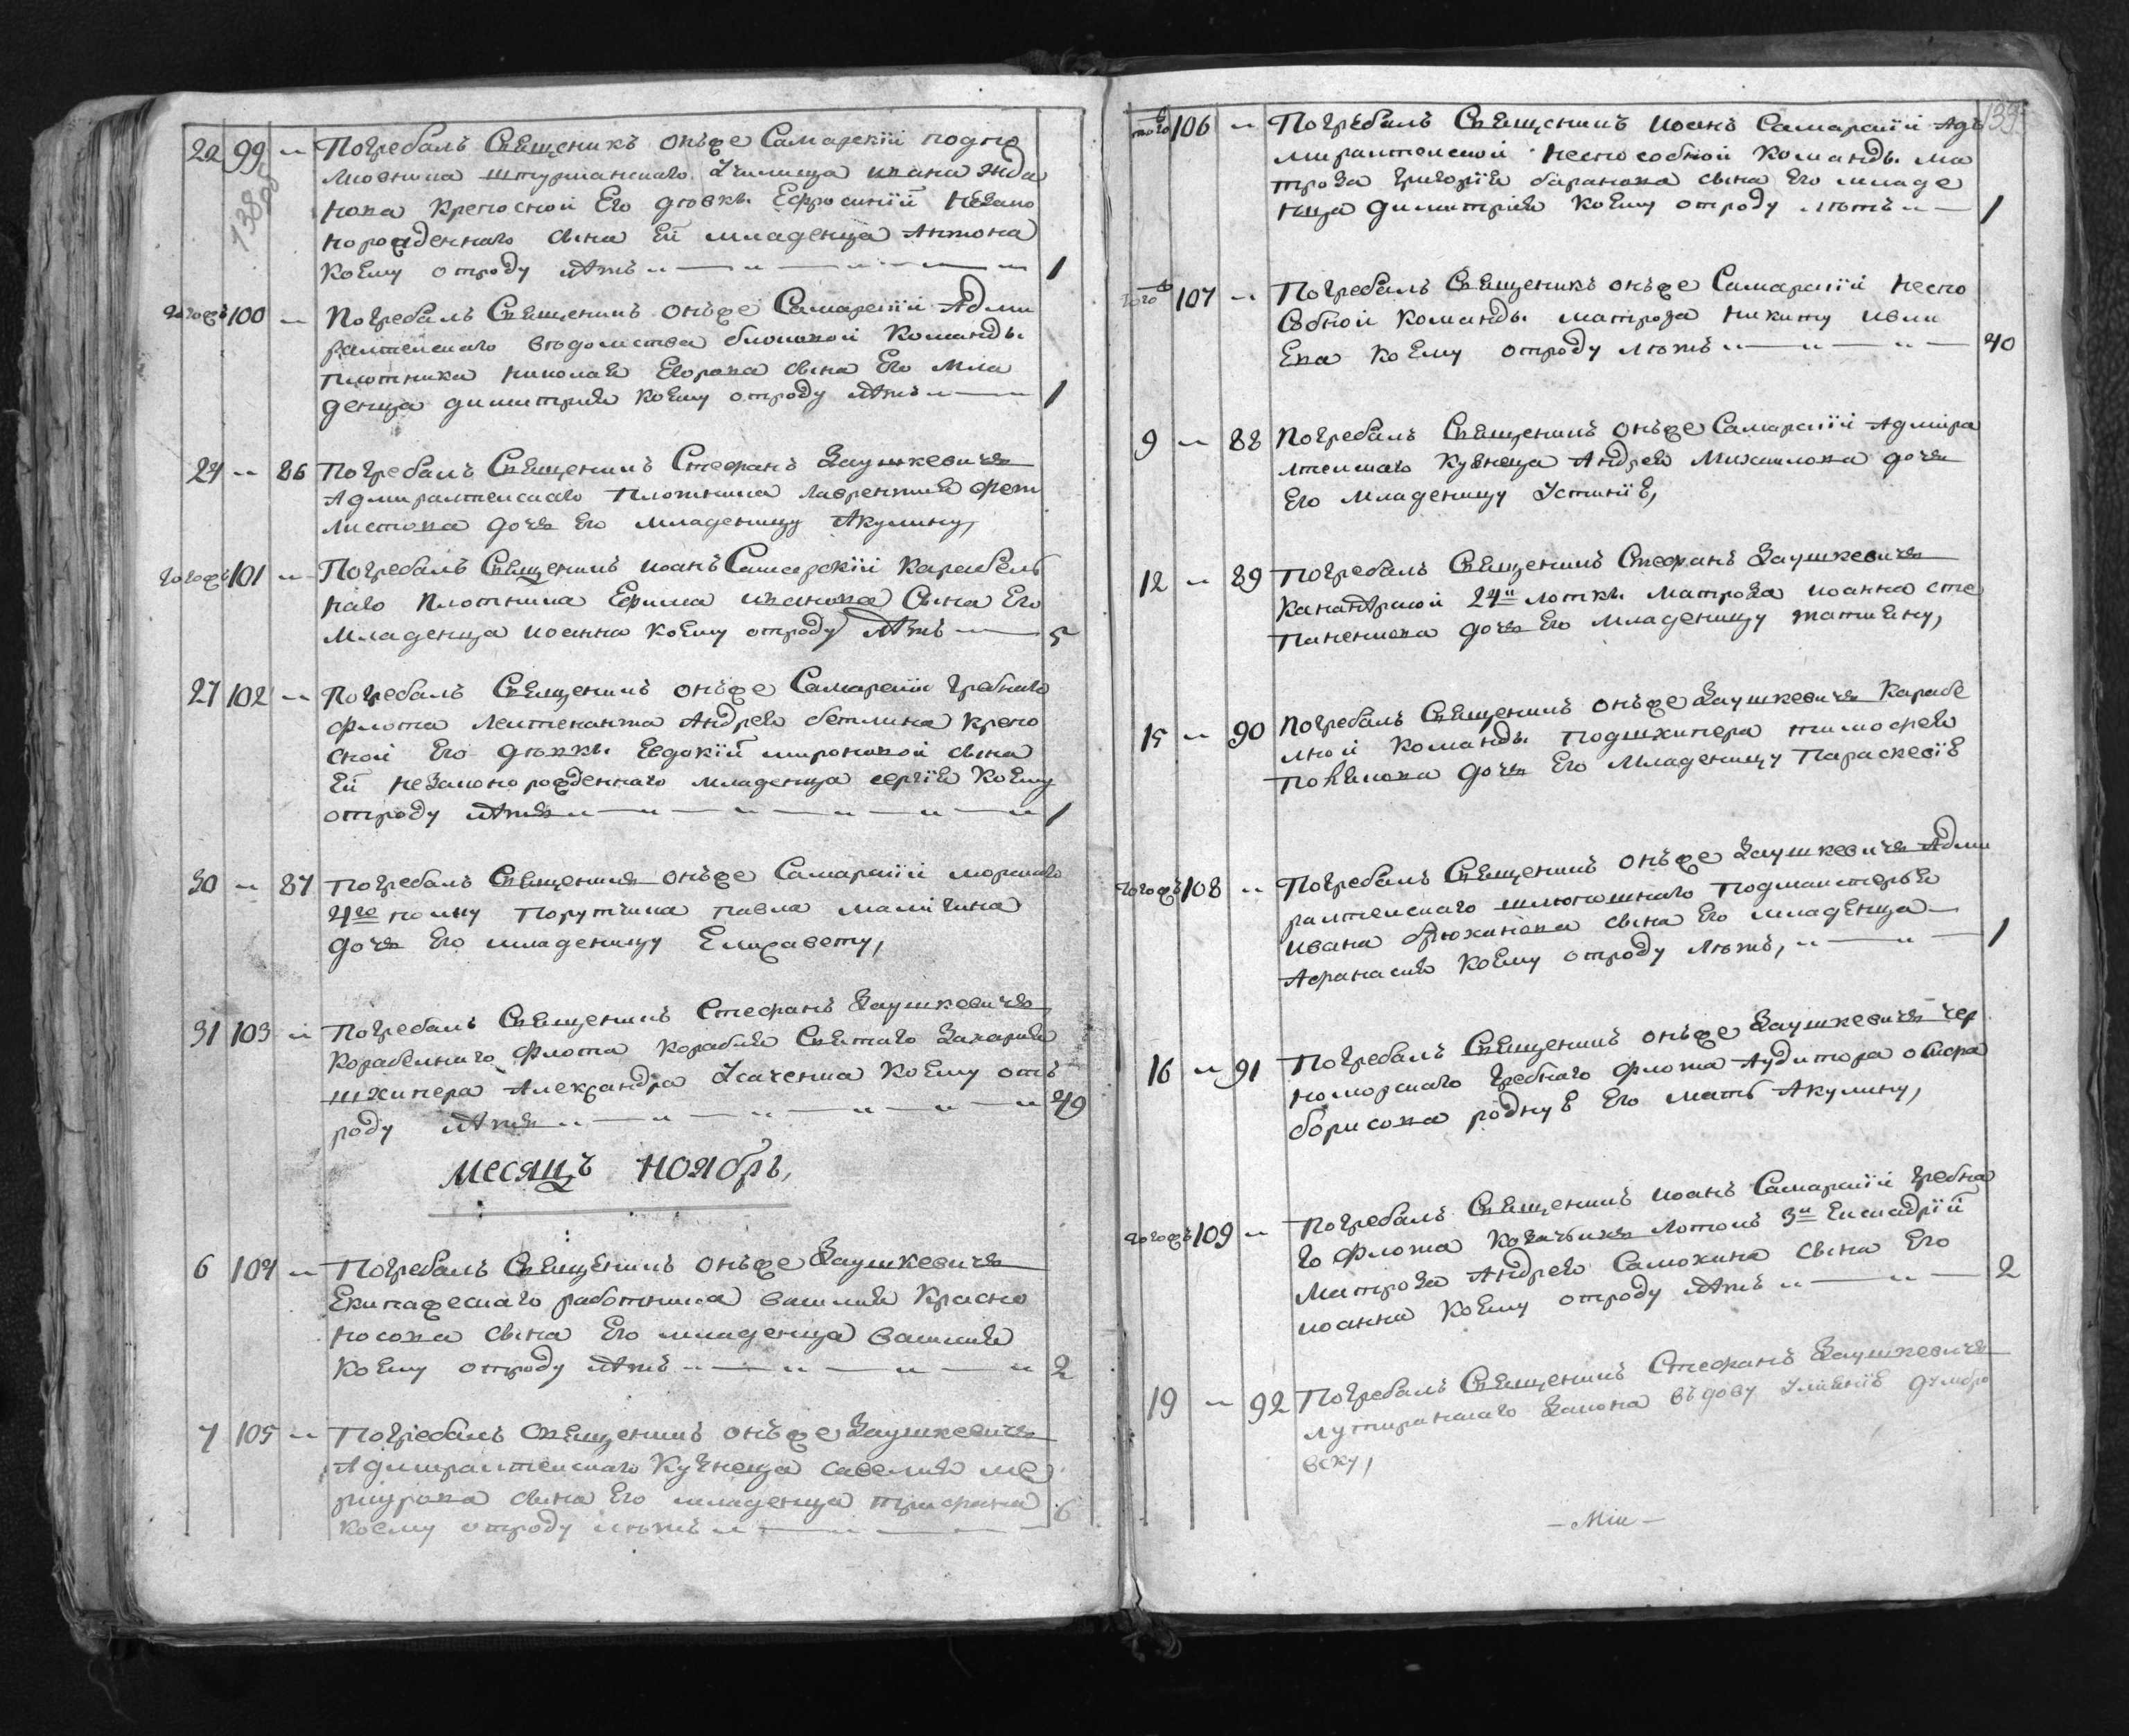 22 99 „ Погребалъ Священикъ онъже Самарскїй подпо
138 об
лковника штурманскаго Училища ивана жда
нова крепосной Его дѣвки Ефросинїй незако
норожденнаго сына Ей младенца Антона
коему отроду лѣтъ „ — „ — „ — „ 1
тогожъ 100 „ Погребалъ Священикъ онъже Самарскїй Адми
ралтейскаго вѣдомства блочной команды
плотника николая Егорова сына Его мла
денца димитрия коему отроду лѣтъ „ — 1
24 „ 86 Погребалъ Священикъ Стефанъ Заушкевичъ
Адмиралтейскаго плотника лаврентия фети
листова дочь Его младеницу Акулину,
тогожъ 101 „ Погребалъ Священикъ иоанъ Самарскїй карабель
наго плотника Ефима иванова сына Его
младенца иоанна коему отроду лѣтъ — 5
27 102 „ Погребалъ Священикъ онъже Самарскїй гребнаго
флота лейтенанта Андрея бетлина крепо
сной Его дѣвки Евдокїй мироновой сына
Ей незаконорожденнаго младенца сергїя коему
отроду лѣтъ „ — „ — „ — „ — „ 1
30 „ 87 погребалъ Священикъ онъже Самарскїй морскаго
4го полку порутчика павла
дочь Его младеницу Елизавету,
31 103 „ Погребалъ Священикъ Стефанъ Заушкевичъ
корабельнаго флота корабля Святаго Захария
шхипера Александра Усаченка коему отъ
роду лѣтъ „ — „ — „ — „ — „ 49
месяцъ ноябрь,
6 104 „ Погребалъ Священикъ онъже Заушкевичъ
Екипажескаго работника василия красно
носова сына Его младенца василия
коему отроду лѣтъ „ — „ — „ — „ 2
7 105 „ Погребалъ Священикъ онъже Заушкевичъ
Адмиралтейскаго кузнеца савелия ме
ркурова сына Его младенца трифана
коему отроду лѣтъ „ — „ — 6
139
того ж 106 „ Погребалъ Священикъ иоанъ Самарскїй Адъ
миралтейской неспособной команды ма
троза григорїя баранова сына Его младе
нца димитрия коему отроду лѣтъ „ — 1
того ж 107 „ Погребалъ Священикъ онъже Самарскїй неспо
собной команды матроза никиту
Ева коему отроду лѣтъ „ — „ — „ — 40
9 „ 88 Погребалъ Священикъ онъже Самарскїй Адмира
лтейскаго кузнеца Андрея Михаилова дочь
Его младеницу Устинїю,
12 „ 89 Погребалъ Священикъ Стефанъ Заушкевичъ
канантрской 24й лотки матроза иоанна сте
паненкова дочь Его младеницу татияну,
15 „ 90 Погребалъ Священикъ онъже Заушкевичъ карабе
лной команды подшхипера тимофея
дочь Его младеницу параскевїю
тогожъ 108 „ Погребалъ Священикъ онъже Заушкевичъ Адми
ралтейскаго шлюпошнаго подмаистерья
ивана брюханова сына Его младенца —
Афанасия коему отроду лѣтъ, „ — „ — 1
16 „ 91 Погребалъ Священикъ онъже Заушкевичъ чер
номорскаго гребнаго флота Аудитора
борисова родную Его мать Акулину,
тогожъ 109 „ Погребалъ Священикъ иоанъ Самарскїй гребна
го флота козачьихъ лотокъ 3й Ексадрїй
Матроза Андрея Самохина сына Его
иоанна коему отроду лѣтъ „ — „ — 2
19 „ 92 Погребалъ Священикъ Стефанъ Заушкевичъ
лутиранскаго Закона въдову
вску,